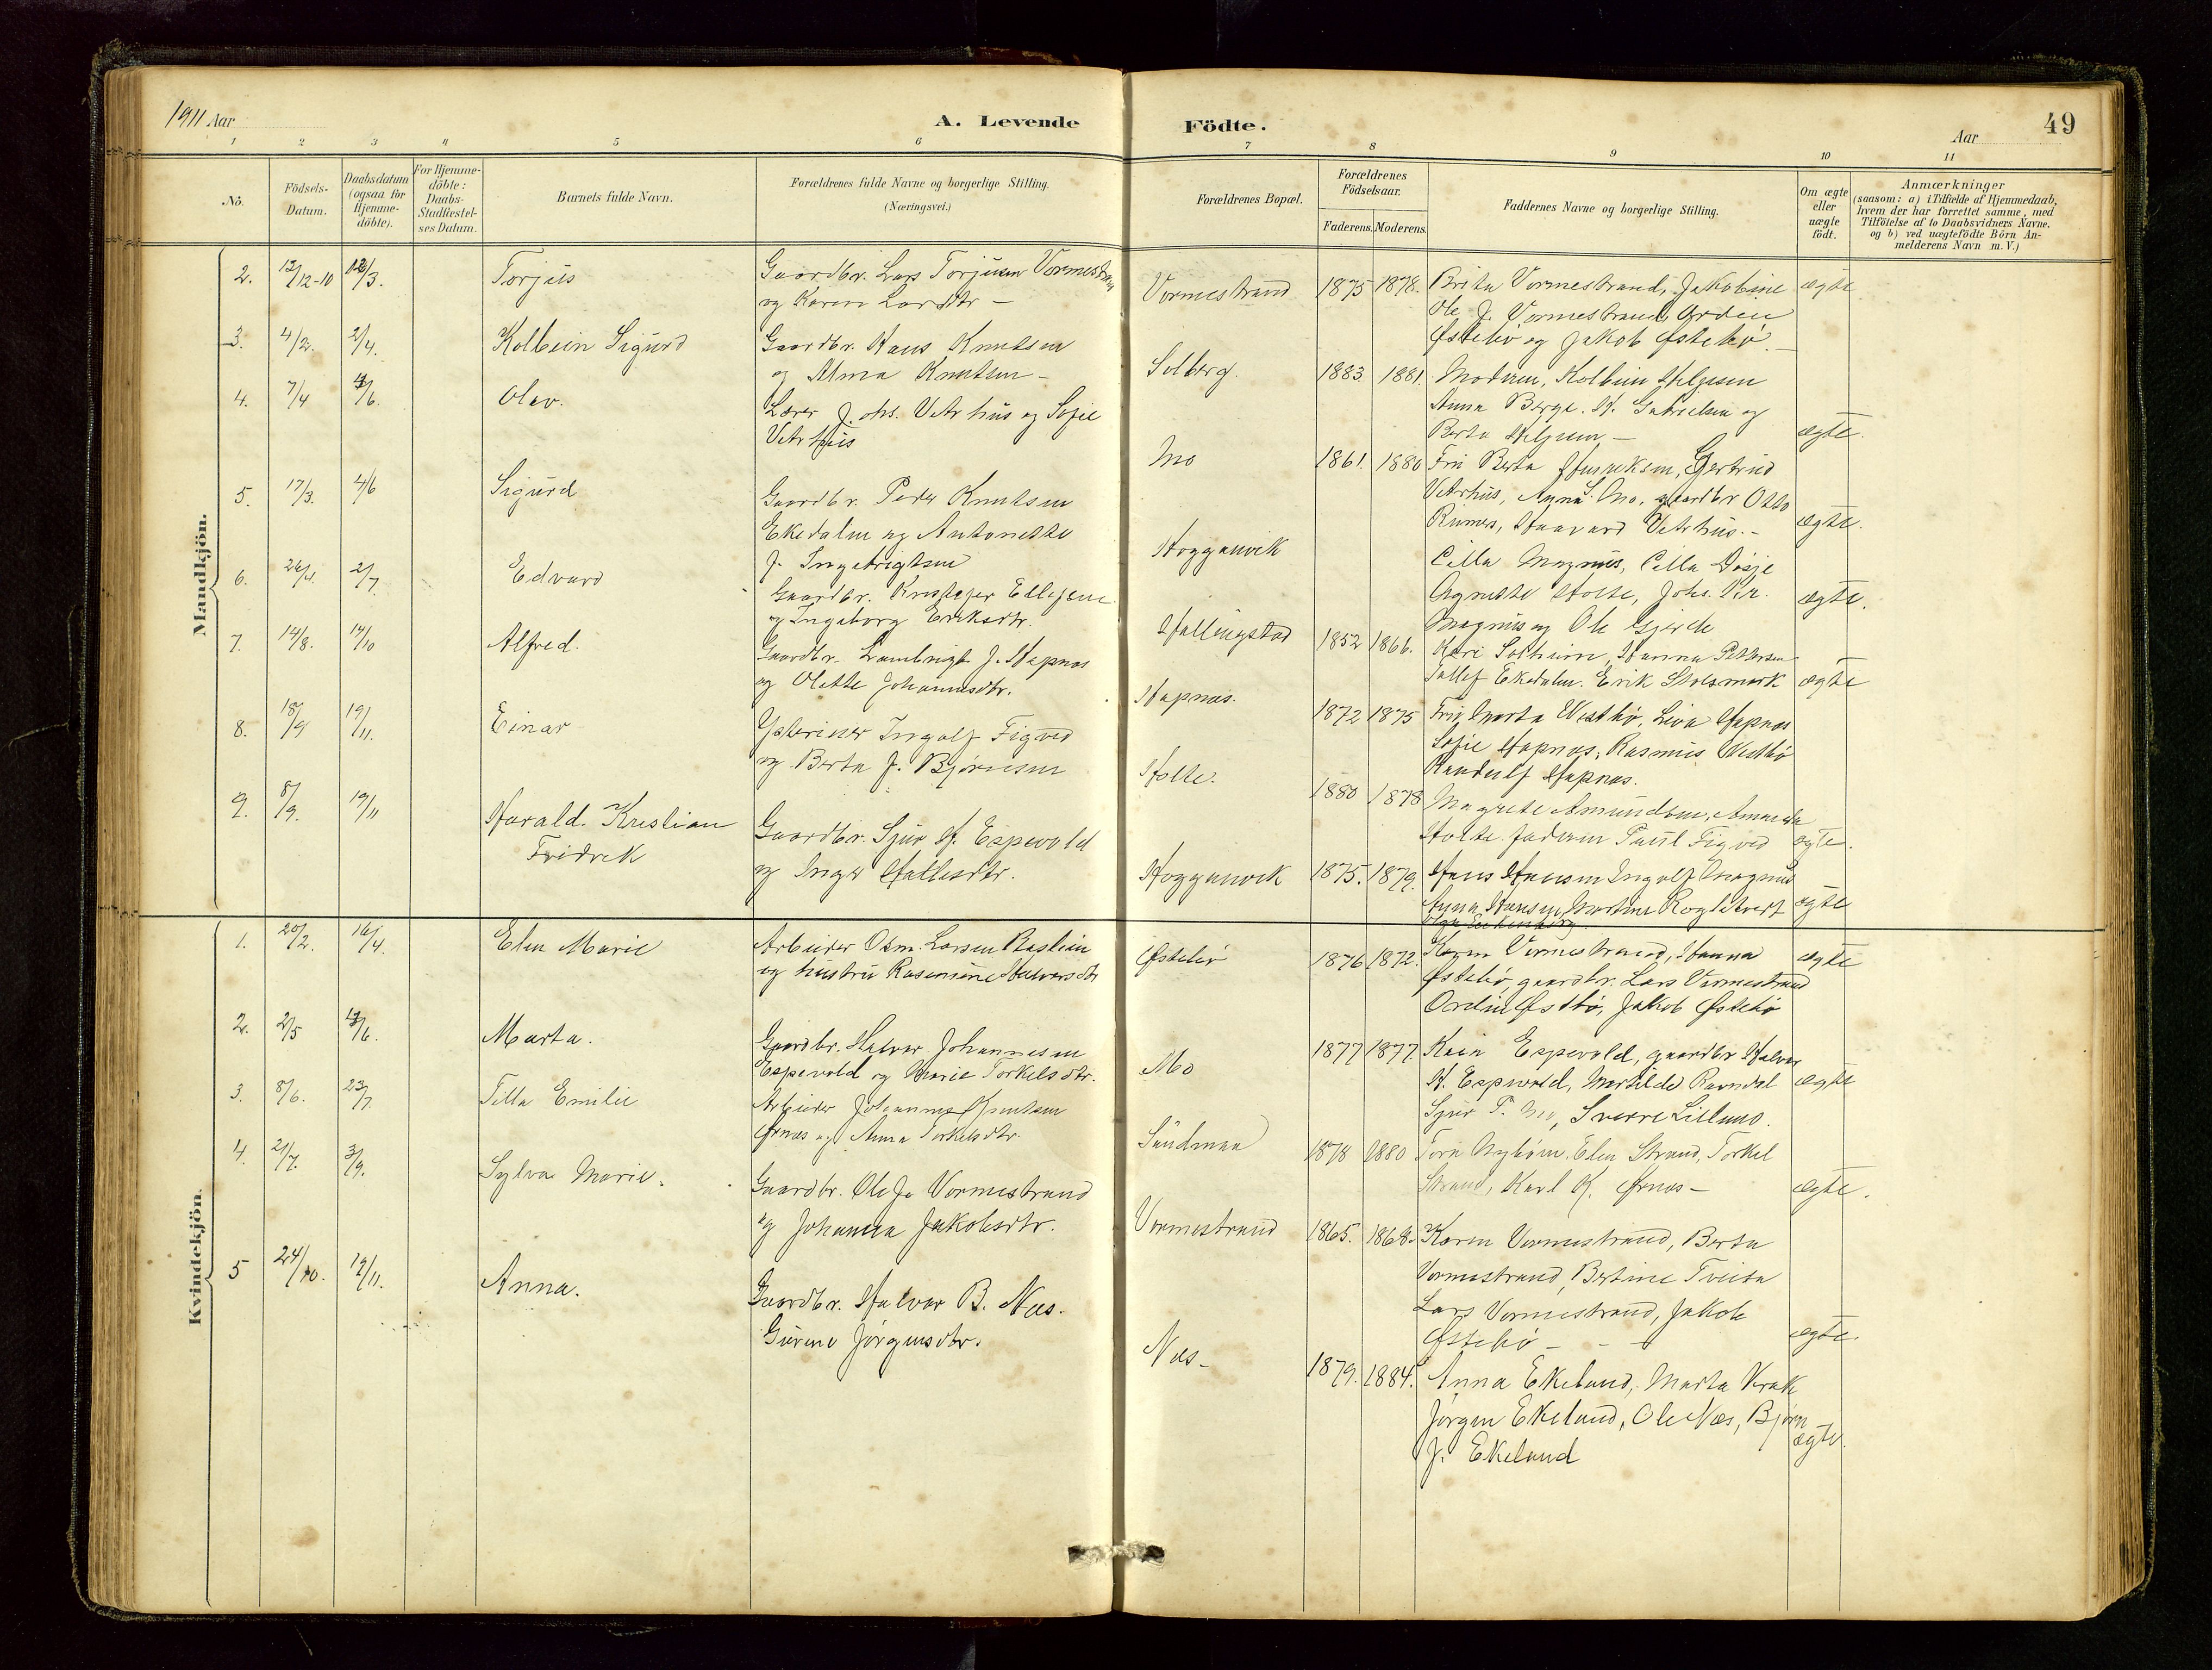 1911 Aar
A. Levende
Födte.
Aar
49
1 2 3 4 5 6 7 8 9 10 11
No.
Födsels-
Datum.
Daabsdatum
(ogsaa for
Hjemme-
döbte).
For Hjemme-
döbte:
Daabs-
Stadfæstel-
ses Datum.
Barnets fulde Navn.
Forældrenes fulde Navne og borgerlige Stilling.
(Næringsvei.)
Forældrenes Bopæl.
Forældrenes
Födselsaar.
Faderens. Moderens.
Faddernes Navne og borgerlige Stilling.
Om ægte
eller
uægte
födt.
Anmærkninger
(saasom: a) i Tilfælde af Hjemmedaab,
hvem der har forrettet samme, med
Tilföielse af to Daabsvidners Navne.
og b) ved uægtefödte Börn An-
melderens Navn m. V.)
Mandkjön.
2. 12/12-10 /3. Torjus
Gaardbr. Lars Torjusen Vormestran
og Karen Larsdtr —
Vormestrand 1875 1878.
Brita Vormestrand, Jakobine
Ole J. Vormestrand, Ordin
Østebø og Jakob Østebø. —
ægte
3. 4/2. 2/4. Kolbein Sigurd
Gaardbr. Hans Knutsen
og Alma Knutsen —
Solberg. 1883 1881.
Moderen, Kolbein Helgesen
Anna Berge. H. Gabrielsen og
Berta Helgesen —
ægte.
4. 7/4 /6. Olav.
Lærer Johs. Vetrhus og Sofie
Vetrhus
Mo 1861. 1880
Fru Berta Henriksen, Gjertrud
Vetrhus, Anna S. Mo, gaardbr Otto
Haavard Vetrhus. —
ægte.
5. 17/3. 4/6 Sigurd
Gaardbr. Peder Knutsen
Ekedalen og Antonette
J. Ingebrigtsen
Hogganvik
Cilla Magnus, Cilla
Agnete Holte, Johs.
Magnus og Ole Gjerde
ægte.
6. 26/4. 2/7 Edvard
Gaardbr. Kristofer Ellefsen
og Ingeborg Eriksdtr.
Hallingstad 1852 1866.
Kari Solheim, Hanna Pettersen
Tallef Ekedalen. Erik Stolsmark
ægte
7. 14/8. 14/10 Alfred.
Gaardbr. Lambrigt J. Hapnas
og Olette Johannesdtr.
Hapnas. 1872 1875
Fru Marta Vestbø, Lina Hapnas
Sofie Hapnas, Rasmus Vestbø
Randulf Hapnas.
8. 18/9 19/11. Einar
Ysteriner Ingolf Figved
og Berta J. Bjørnsen
Holte. 1880 1878
Magrete Asmundsen, Amanda
Holte. faderen Paul Figved
ægte.
9. 8/9. 19/11 Harald. Kristian
Fredrek
Gaardbr. Sjur H. Espevold
og Inger Hallesdtr.
Hogganvik 1875. 1879.
Hans Hansen Ingolf Magnus
Anna Hansen, Martine
ægte
Kvindekjön.
1. 20/2. 16/4. Elen Marie
Arbeider Osm. Larsen
og hustru Rasmine Halvorsdtr
Østebø 1876 1872.
Karen Vormestrand, Hanna
Østebø, gaardbr. Lars Vormestrand
Ordin Østbø, Jakob Østebø
ægte
2. 2/5 /6. Marta.
Gaardbr. Halvor Johannesen
Espevold og Marie Torkelsdtr.
Mo 1877 1877.
Kaia Espevold, gaardbr Halvor
H. Espevold, Matilde Ravndal
Sjur T. Mo, Sverre Lillund.
ægte
3. 8/6. 23/7. Tilla Emilie
Arbeider Johannes Knutsen
Ørnes og Anna Torkelsdtr.
Sandman 1878 1880
Tora Nyhom. Elen Strand, Torkel
Strand, Karl K. Ørnes —
ægte.
4. 21/7. 3/9. Sylva Marie.
Gaardbr. Ole J. Vormestrand
og Johanna Jakobsdtr.
Vormestrand 1865. 1868.
Karen Vormestrand, Berta
Vormestrand, Bertine Tveita
Lars Vormestrand, Jakob
Østebø — — —
ægte.
5 24/10. 19/11. Anna.
Gaardbr. Halvor B. Næs.
Gurine Jørgensdtr.
Næs — 1879. 1884.
Anna Ekeland, Marta
Jørgen Ekeland, Ole Næs, Bjørn
J. Ekeland
ægte.